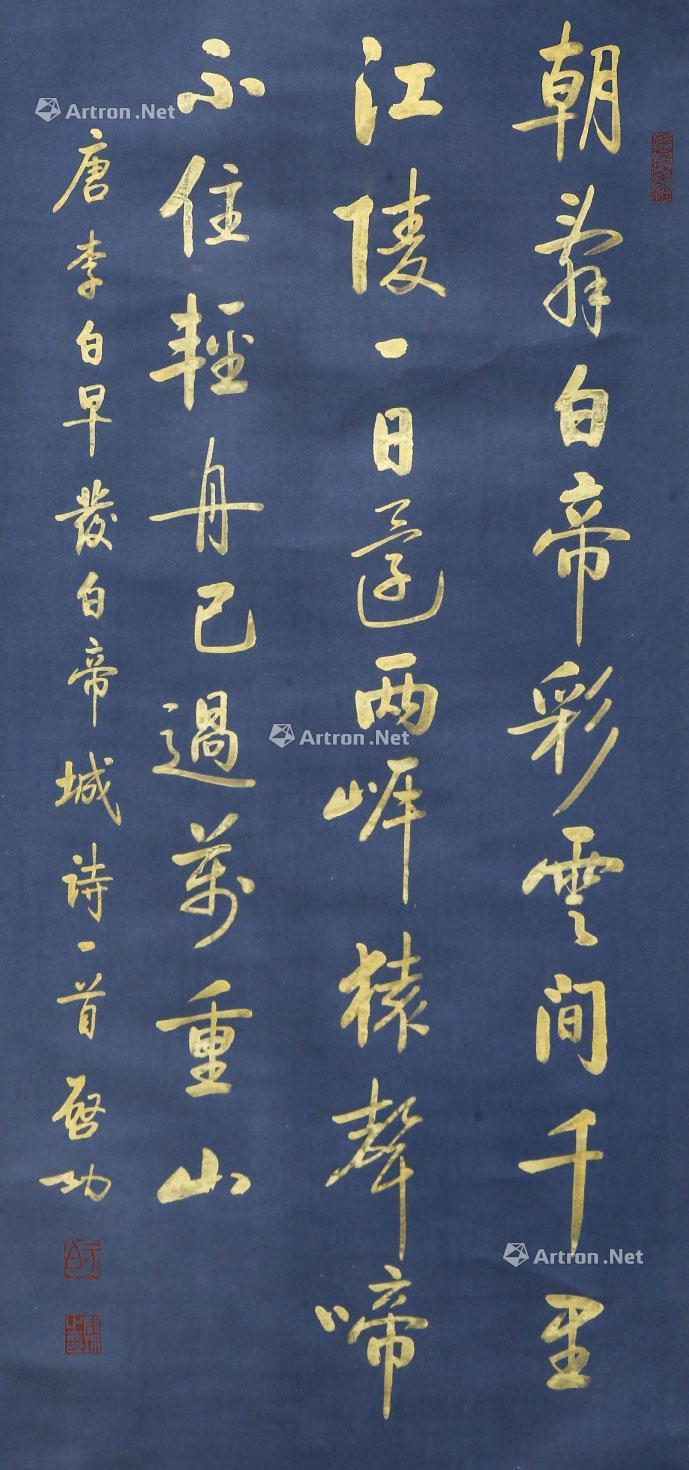 朝辞白帝彩雲間千里
江陵一日還兩岸猿聲啼
不住輕舟已過萬重山
唐李白早發白帝城詩一首 啓功
Artron.Net
Artron.Net
Artron.Net